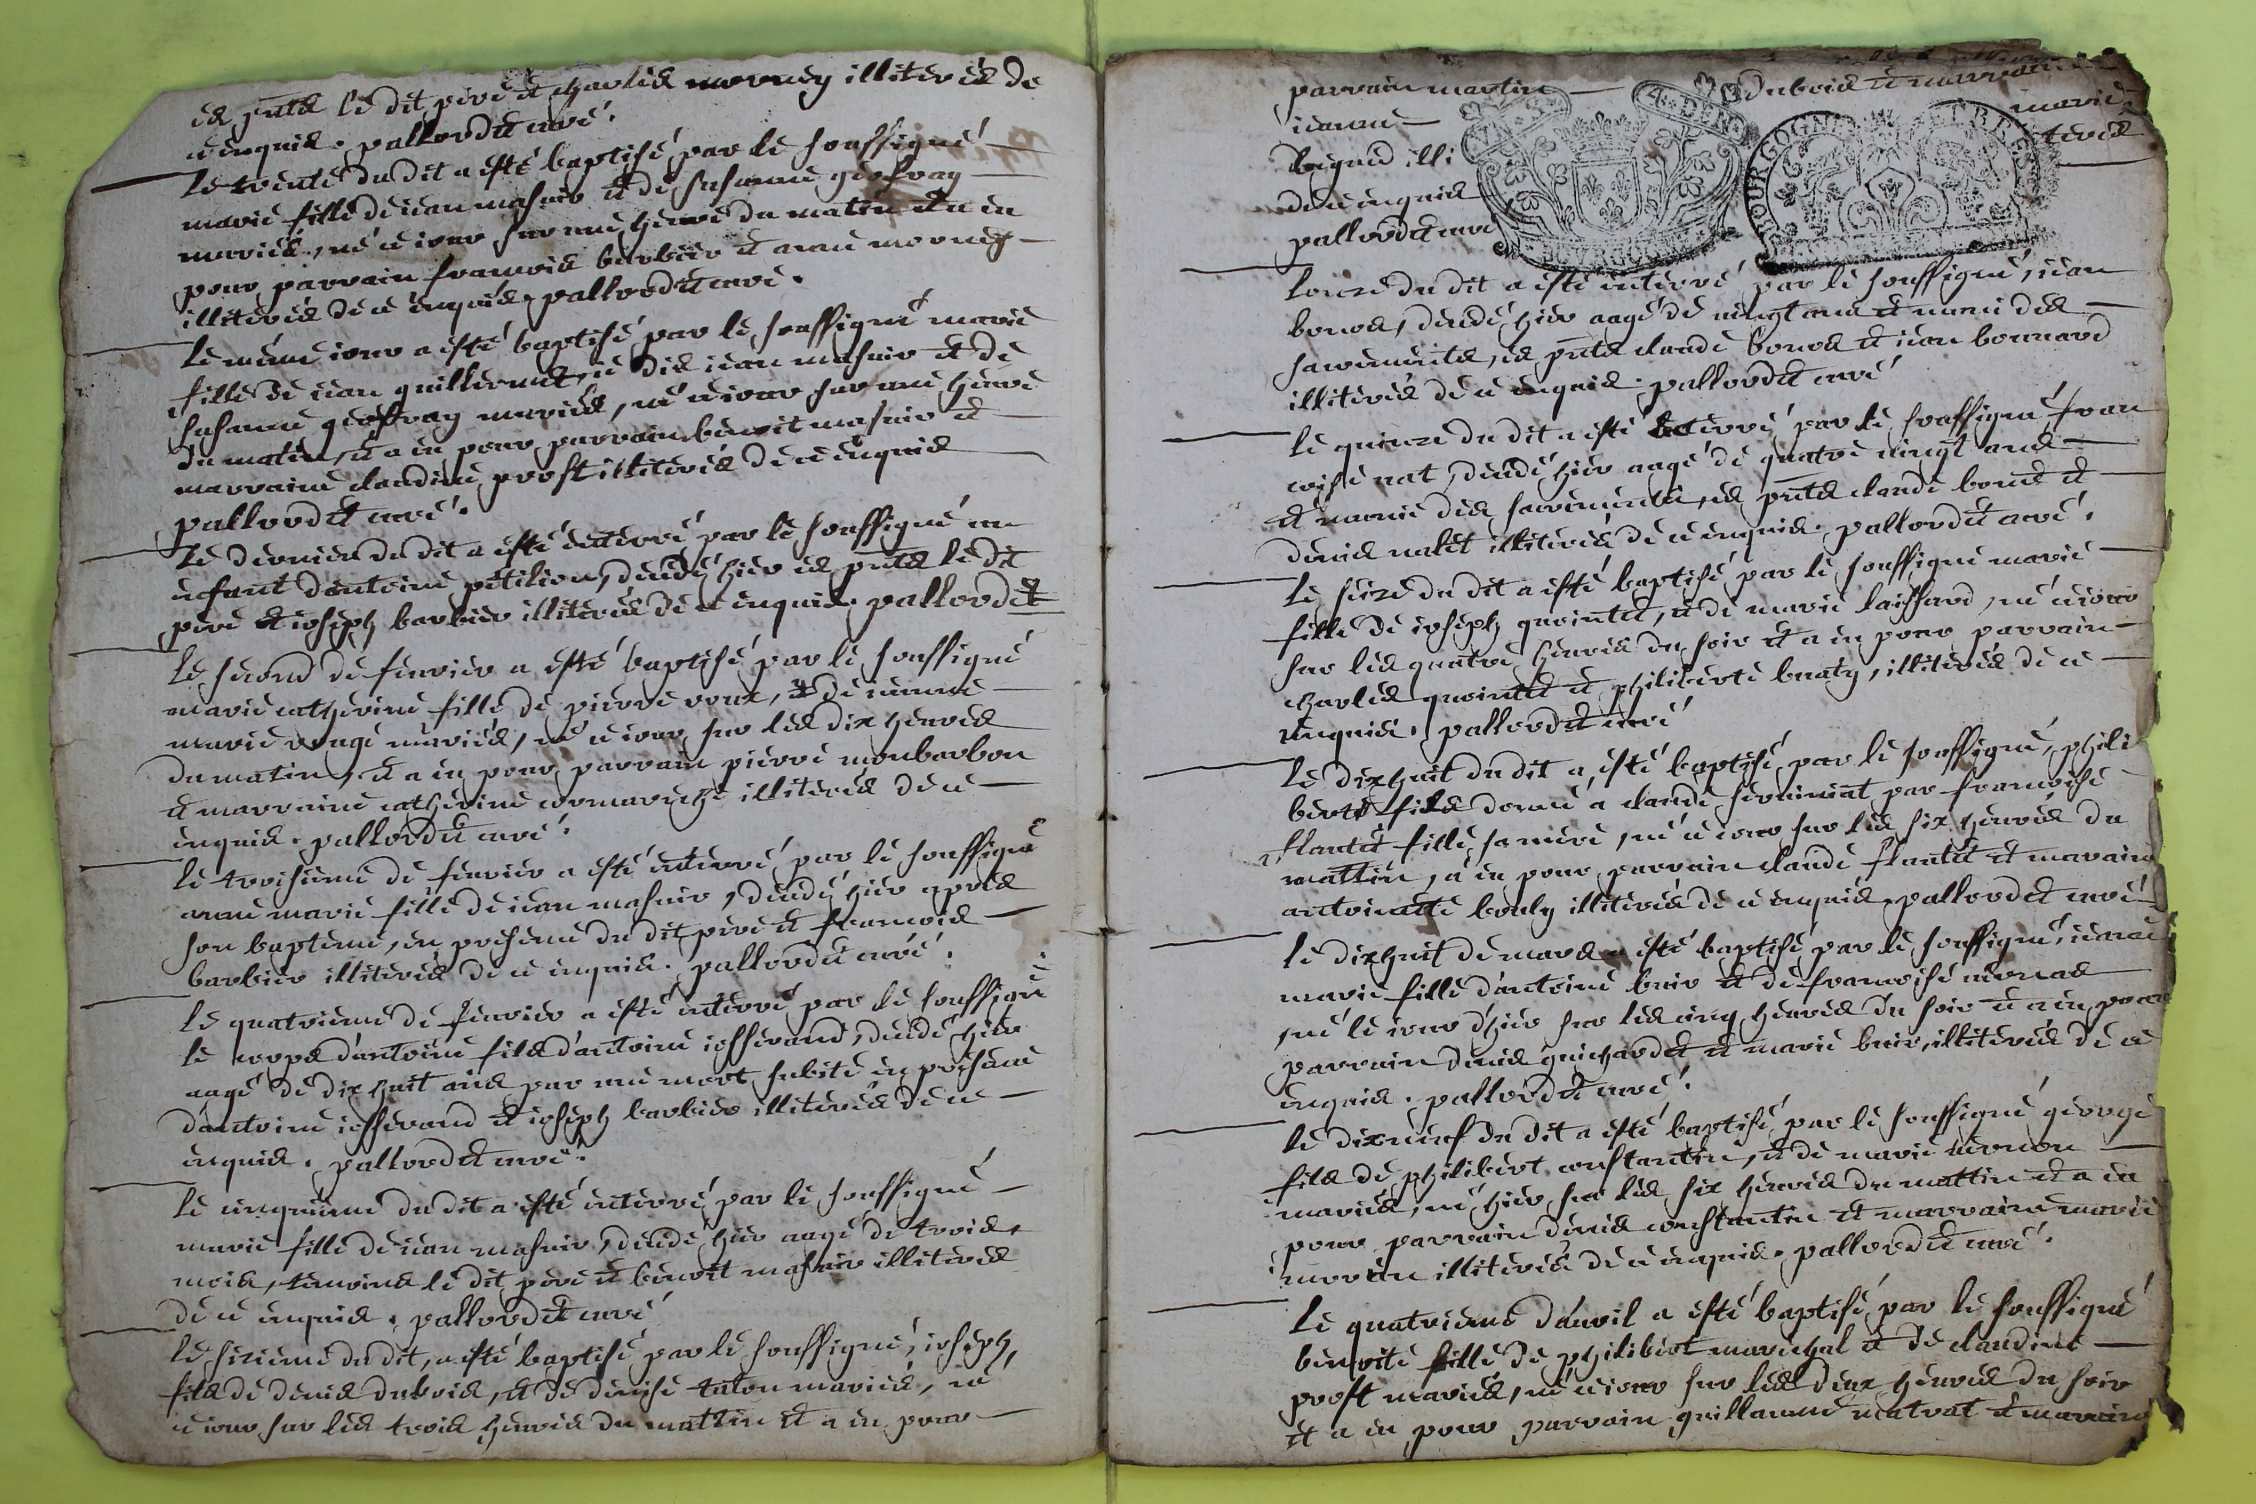 és pnts le dit pere et charles morney illiterés de
ce enquis. pallordet curé.
Le trente du dit a esté baptisé par le soussigné
marie fille de iean masuir et de susanne geofray
mariés, né ce iour sur une heure du matin et a eu
pour parrain francois barbier et anne morney
illiterés de ce enquis. pallordet curé.
Le même iour a esté baptisé par le soussigné marie
fille de iean guillermet, ie dis iean masuir et de
susanne geofray mariés, né ce iour sur une heure
du matin, et a eu pour parrain benoit masuir et
marraine claudine prost illiterés de ce enquis
pallordet curé.
Le dernier du dit a esté enterré par le soussigné un
enfant d'antoine petilion, decedé hier és pnts le dit
pere et ioseph barbier illiterés de ce enquis. pallordet
Le second de feurier a esté baptisé par le soussigné
marie catherine fille de pierre roux, et de ieanne
marie uragé mariés, né ce iour sur les dix heures
du matin, et a eu pour parrain pierre monbarbon
et marraine catherine cormareche illiterés de ce
enquis. pallordet curé.
Le troisieme de feurier a esté enterré par le soussigné
anne marie fille de iean masuir, decedé hier apres
son bapteme, en presence du dit pere et francois
barbier illiterés de ce enquis. pallordet curé.
Le quatrieme de feurier a esté enterré par le soussigné
le corps d'antoine fils d'antoine iosserand, decedé hier
aagé de dix huit ans par une mort subite en presence
d'antoine iosserand et ioseph barbier illiterés de ce
enquis. pallordet curé.
Le cinquieme du dit a esté enterré par le soussigné
marie fille de iean masuir, decedé hier aagé de trois
mois, temoins le dit pere et benoit masuir illiterés
de ce enquis. pallordet curé
Le sixieme du dit, a esté baptisé par le soussigné, ioseph,
fils de denis dubois, et de denise talon mariés, né
ce iour sur les trois heures du mattin et a eu pour
parrain martin dubois et marraine
ieanne marie
illi terés
de ce enquis
pallordet curé
BOURGOGNE
L'onze du dit a esté enterré par le soussigné, iean
bonos, decedé hier aagé de uingt ans et muni des
sacrements, és pnts claude bonos et iean bonnard
illiterés de ce enquis. pallordet curé
Le quinze du dit a esté enterré par le soussigné fran
coise nat, decedé hier aagé de quatre uingt ans
et munie des sacrements, és pnts claude bonos et
denis nalet illiterés de ce enquis. pallordet curé.
Le seize du dit a esté baptisé par le soussigné marie
fille de ioseph quointet, et de marie laissard, né ce iour
sur les quatre heures du soir et a eu pour parrain
charles quointet et philiberte buaty, illiterés de ce
enquis. pallordet curé
Le dix huit du dit a esté baptisé par le soussigné, phili
bert fils donné a claude seruiniat par francoise
flantet fille sa mere, né ce iour sur les six heures du
mattin, a eu pour parrain claude flantet et maraine
antoinette bouly illiterés de ce enquis. pallordet curé
Le dix huit de mars a esté baptisé par le soussigné, ieanne
marie fille d'antoine buir et de francoise uernas
né le iour d'hier sur les cinq heures du soir et a eu pour
parrain denis guichardet et marie buir, illiterés de ce
enquis. pallordet curé.
Le dixneuf du dit a esté baptisé par le soussigné george
fils de philibert constantin, et de marie uernon
mariés, né hier sur les six heures du mattin et a eu
pour parrain denis constantin et marraine marie
moren illiterés de ce enquis. pallordet curé.
Le quatrieme d'auril a esté baptisé par le soussigné
benoite fille de philibert marechal et de claudine
prost mariés, né ce iour sur les deux heures du soir
et a eu pour parrain guillaume matrat et marraine